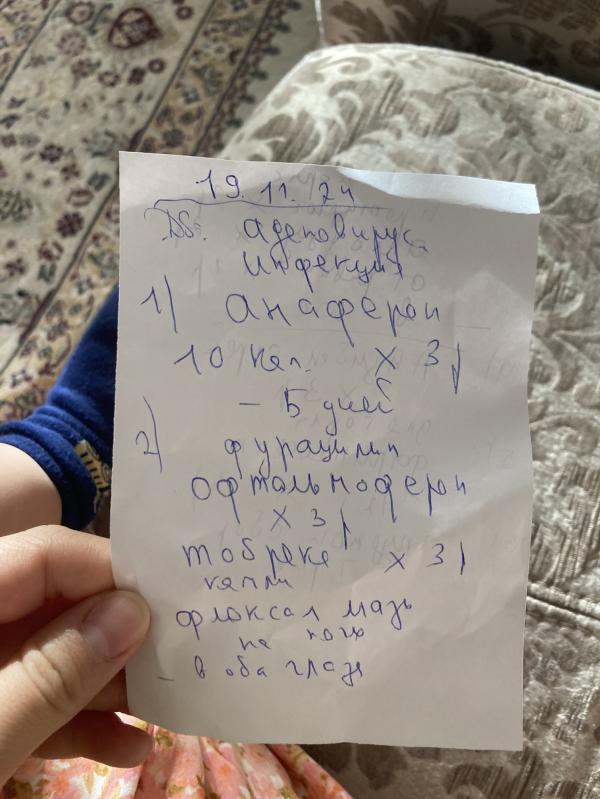 19.11.24
DS: аденовирусн
инфекция
1) анаферон
10 кап. х 3 р
– 5 дней
2) фурацилин
офтальмоферон
х 3 р
тобрекс х 3 р
капли
флоксал мазь
на ночь
– в оба глаза